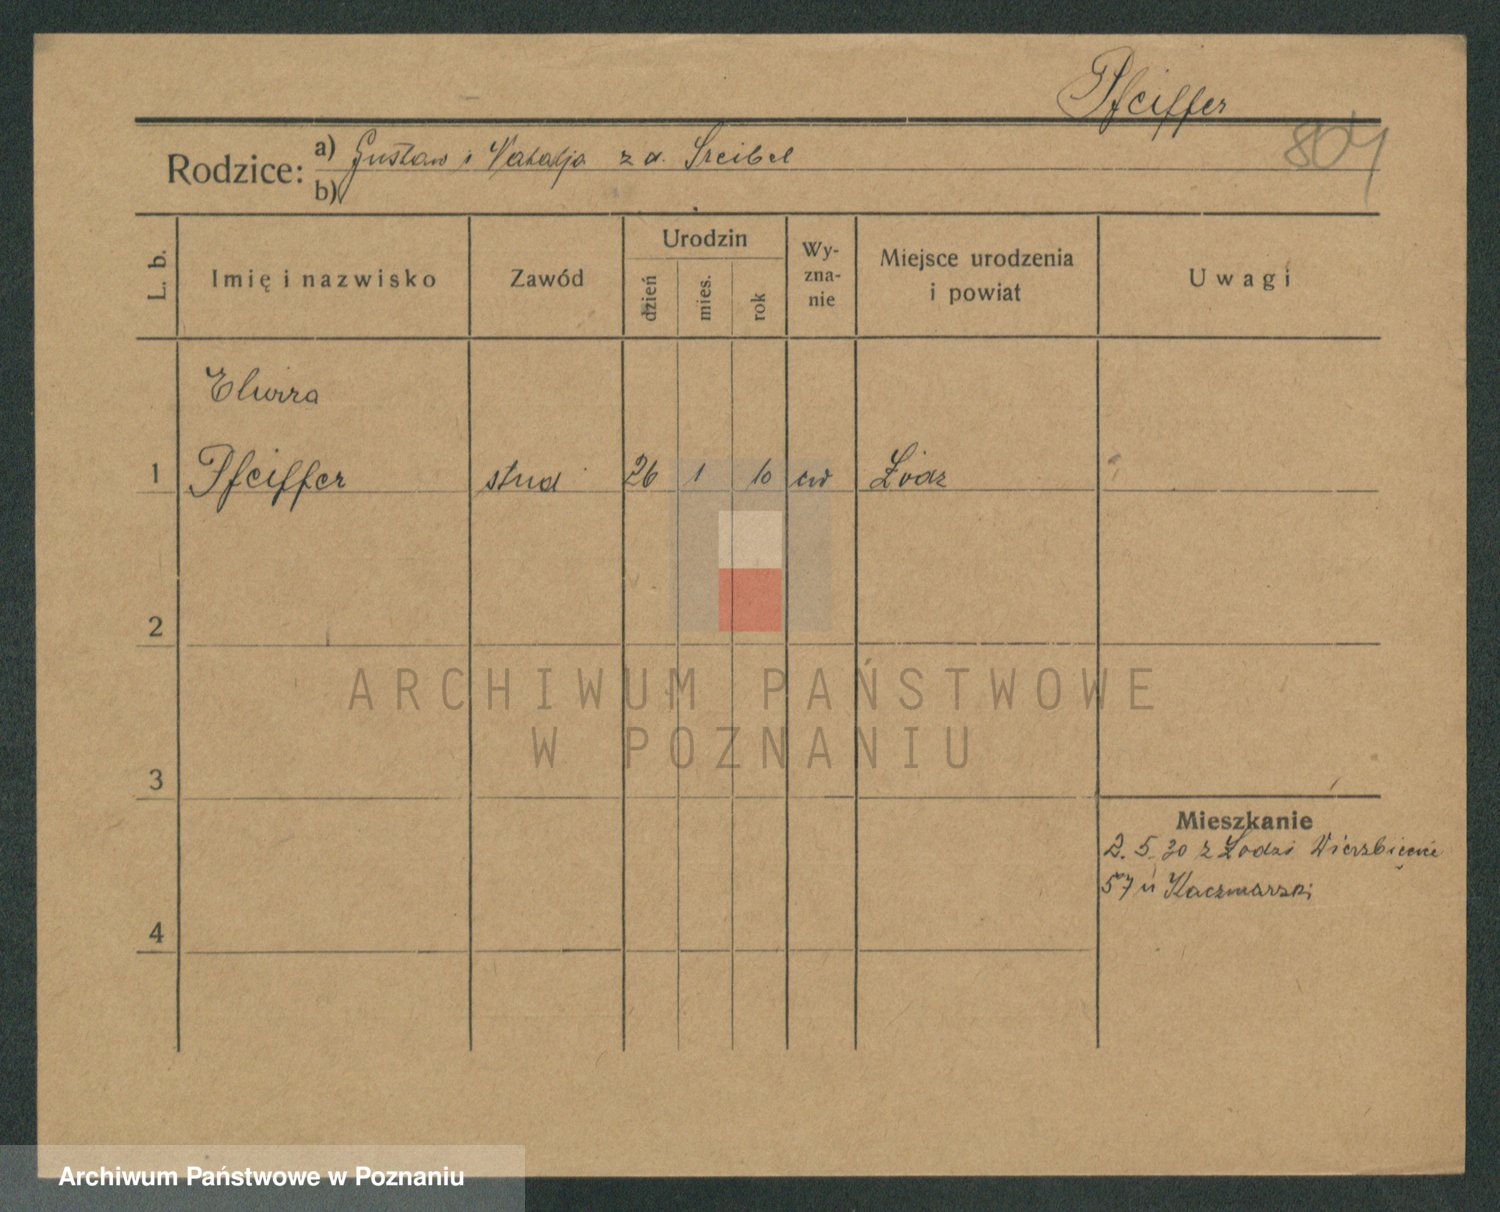 Pfeiffer
804
Rodzice: a) Gustaw i Natalja z d. Szeibel
b)
L. b.
Imię i nazwisko
Zawód
Urodzin
dzień
mies.
rok
Wy-
zna-
nie
Miejsce urodzenia
i powiat
Uwagi
Elwira
1 Pfeiffer stud 26 1 10 ew Łódz
2
3
4
Mieszkanie
2. 5. 30 z Łodzi Wierzbięcice
57 u Kaczmarski
ARCHIWUM PAŃSTWOWE
W POZNANIU
Archiwum Państwowe w Poznaniu